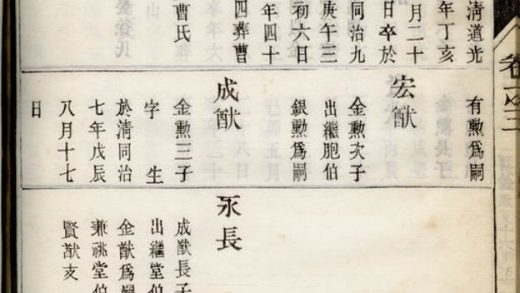 卷之三
清道光
年丁亥
月二十
日卒於
同治九
庚午三
初六日
年四十
四葬曹
曹氏
有勲爲嗣
宏猷
金勲次子
出繼胞伯
銀勲爲嗣
成猷
金勲三子
字 生
於清同治
七年戊辰
八月十七
日
永長
成猷長子
出繼堂伯
金猷爲嗣
兼祧堂伯
賢猷支